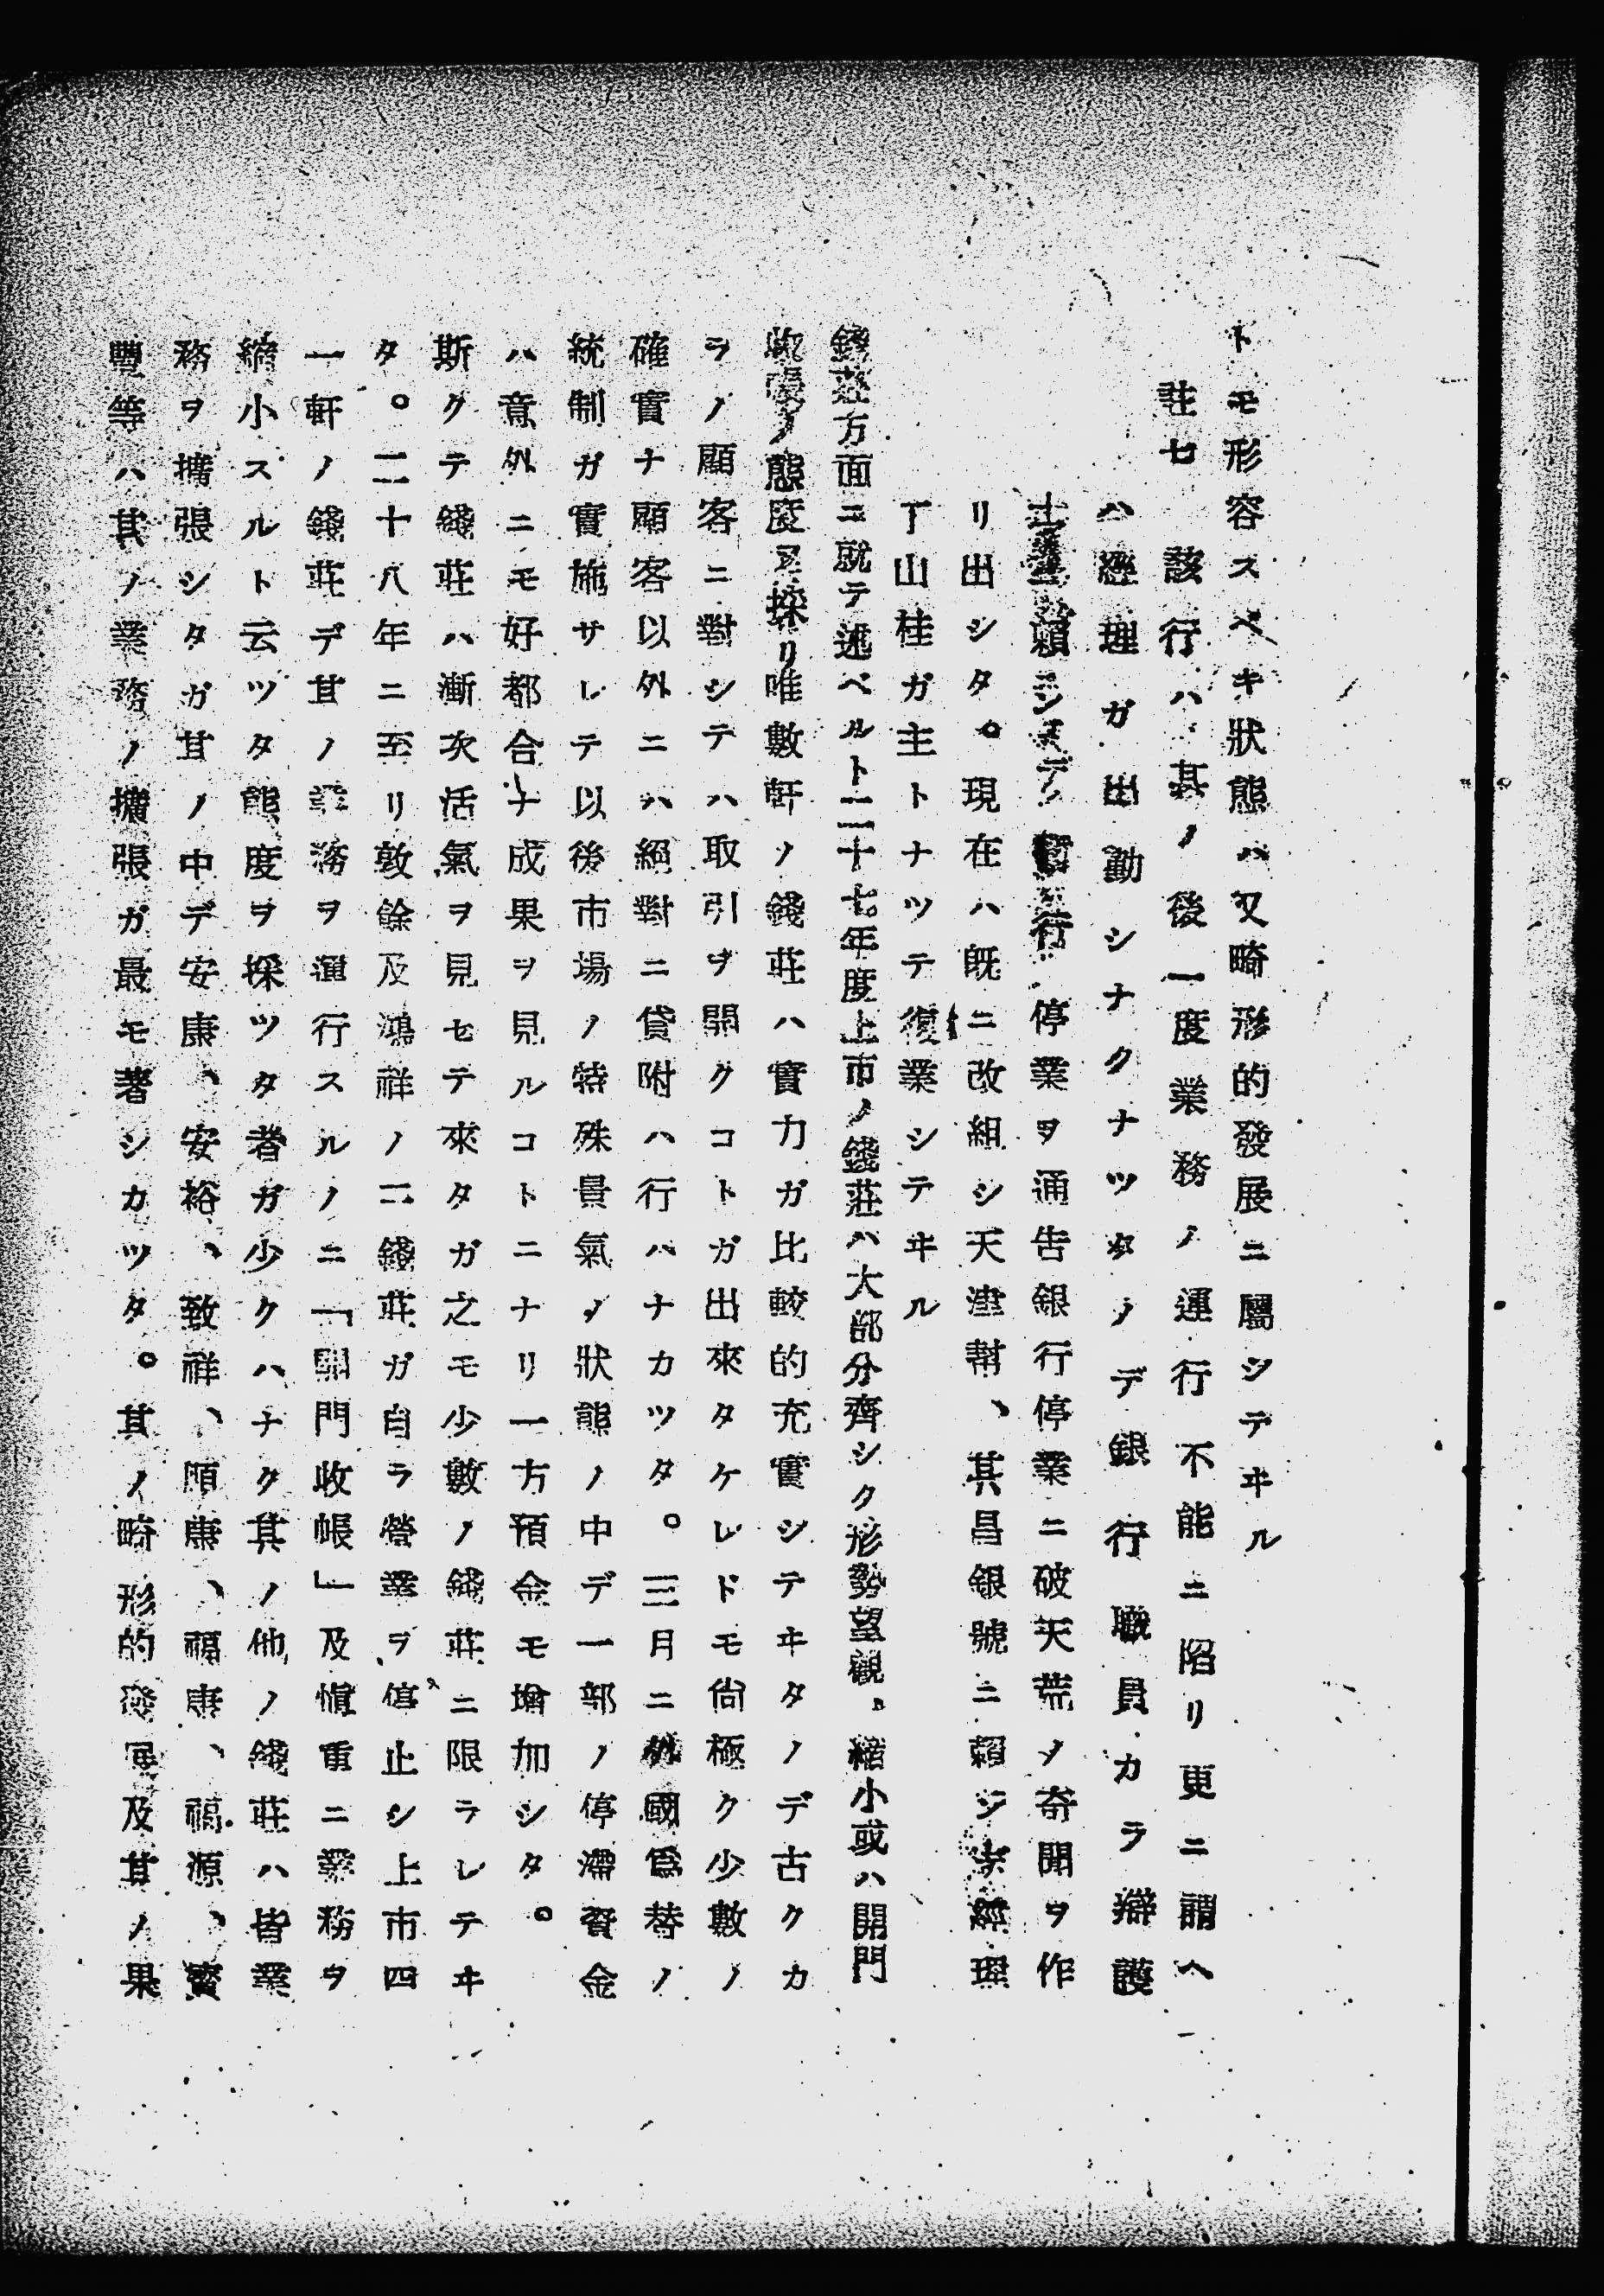 トモ形容スベキ狀態ハ又畸形的發展ニ屬シテヰル
註七 該行ハ其ノ後一度業務ノ運行不能ニ陷リ更ニ謂ヘ
ハ經理ガ出勤シナクナツタノデ銀行職員カラ辯護
士ニ依賴シ 銀行停業ヲ通告銀行停業ニ破天荒ノ奇聞ヲ作
リ出シタ。現在ハ旣ニ改組シ天津幇、其昌銀號ニ賴シ 經理
丁山桂ガ主トナツテ復業シテヰル
錢莊方面ニ就テ述ベルト二十七年度上市ノ錢莊ハ大部分齊シク形勢望觀、縮小或ハ開門
收帳ノ態度ヲ採リ唯數軒ノ錢莊ハ實力ガ比較的充實シテヰタノデ古クカ
ラノ顧客ニ對シテハ取引ヲ開クコトガ出來タケレドモ尙極ク少數ノ
確實ナ顧客以外ニハ絕對ニ貸附ハ行ハナカツタ。三月ニ外國爲替ノ
統制ガ實施サレテ以後市場ノ特殊景氣ノ狀態ノ中デ一部ノ停滯資金
ハ意外ニモ好都合ナ成果ヲ見ルコトニナリ一方預金モ增加シタ。
斯クテ錢莊ハ漸次活氣ヲ見セテ來タガ之モ少數ノ錢莊ニ限ラレテヰ
タ。二十八年ニ至リ敦餘及鴻祥ノ二錢莊ガ自ラ營業ヲ停止シ上市四
一軒ノ錢莊デ其ノ業務ヲ運行スルノニ「開門收帳」及愼重ニ業務ヲ
縮小スルト云ツタ態度ヲ採ツタ者ガ少クハナク其ノ他ノ錢莊ハ皆業
務ヲ擴張シタガ其ノ中デ安康、安裕、致祥、順康、福康、福源、寶
豐等ハ其ノ業務ノ擴張ガ最モ著シカツタ。其ノ畸形的發展及其ノ果